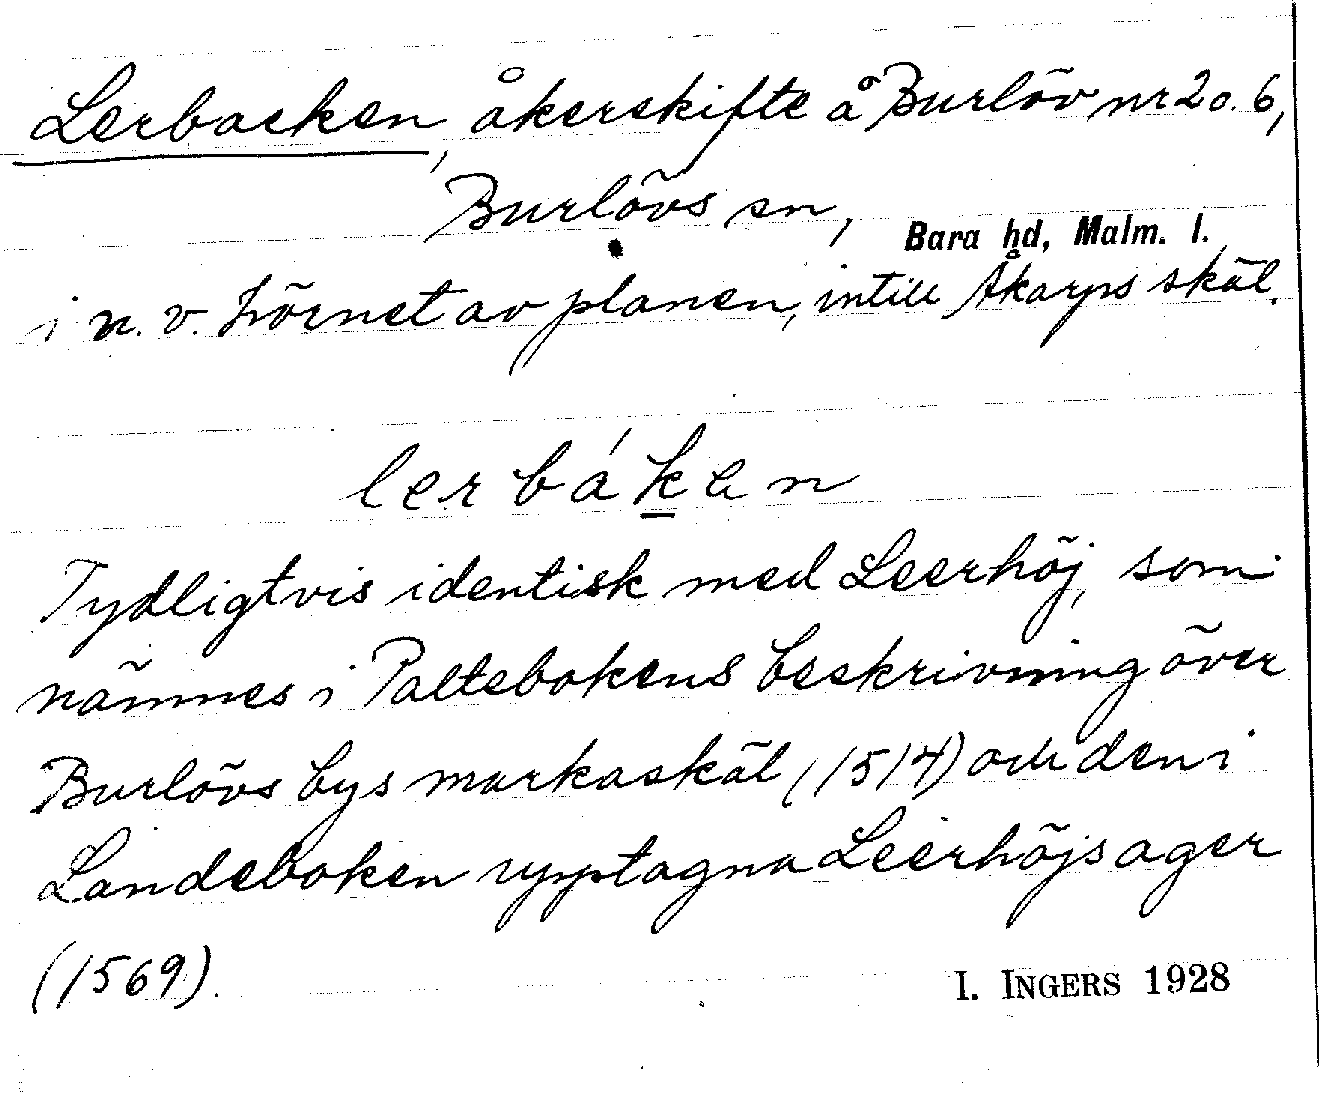 Lerbacken, åkerskifte å Burlöv nr 2 o. 6,
Burlövs sn, Bara hd, Malm. l.
i n. v. hörnet av planen, intill Åkarps skäl.
lerbáken
Tydligtvis identisk med Leerhöj, som
nämnes i Paltebokens beskrivning över
Burlövs bys markaskäl (1514) och den i
Landeboken upptagna Leerhöjsager
(1569).
I. INGERS 1928